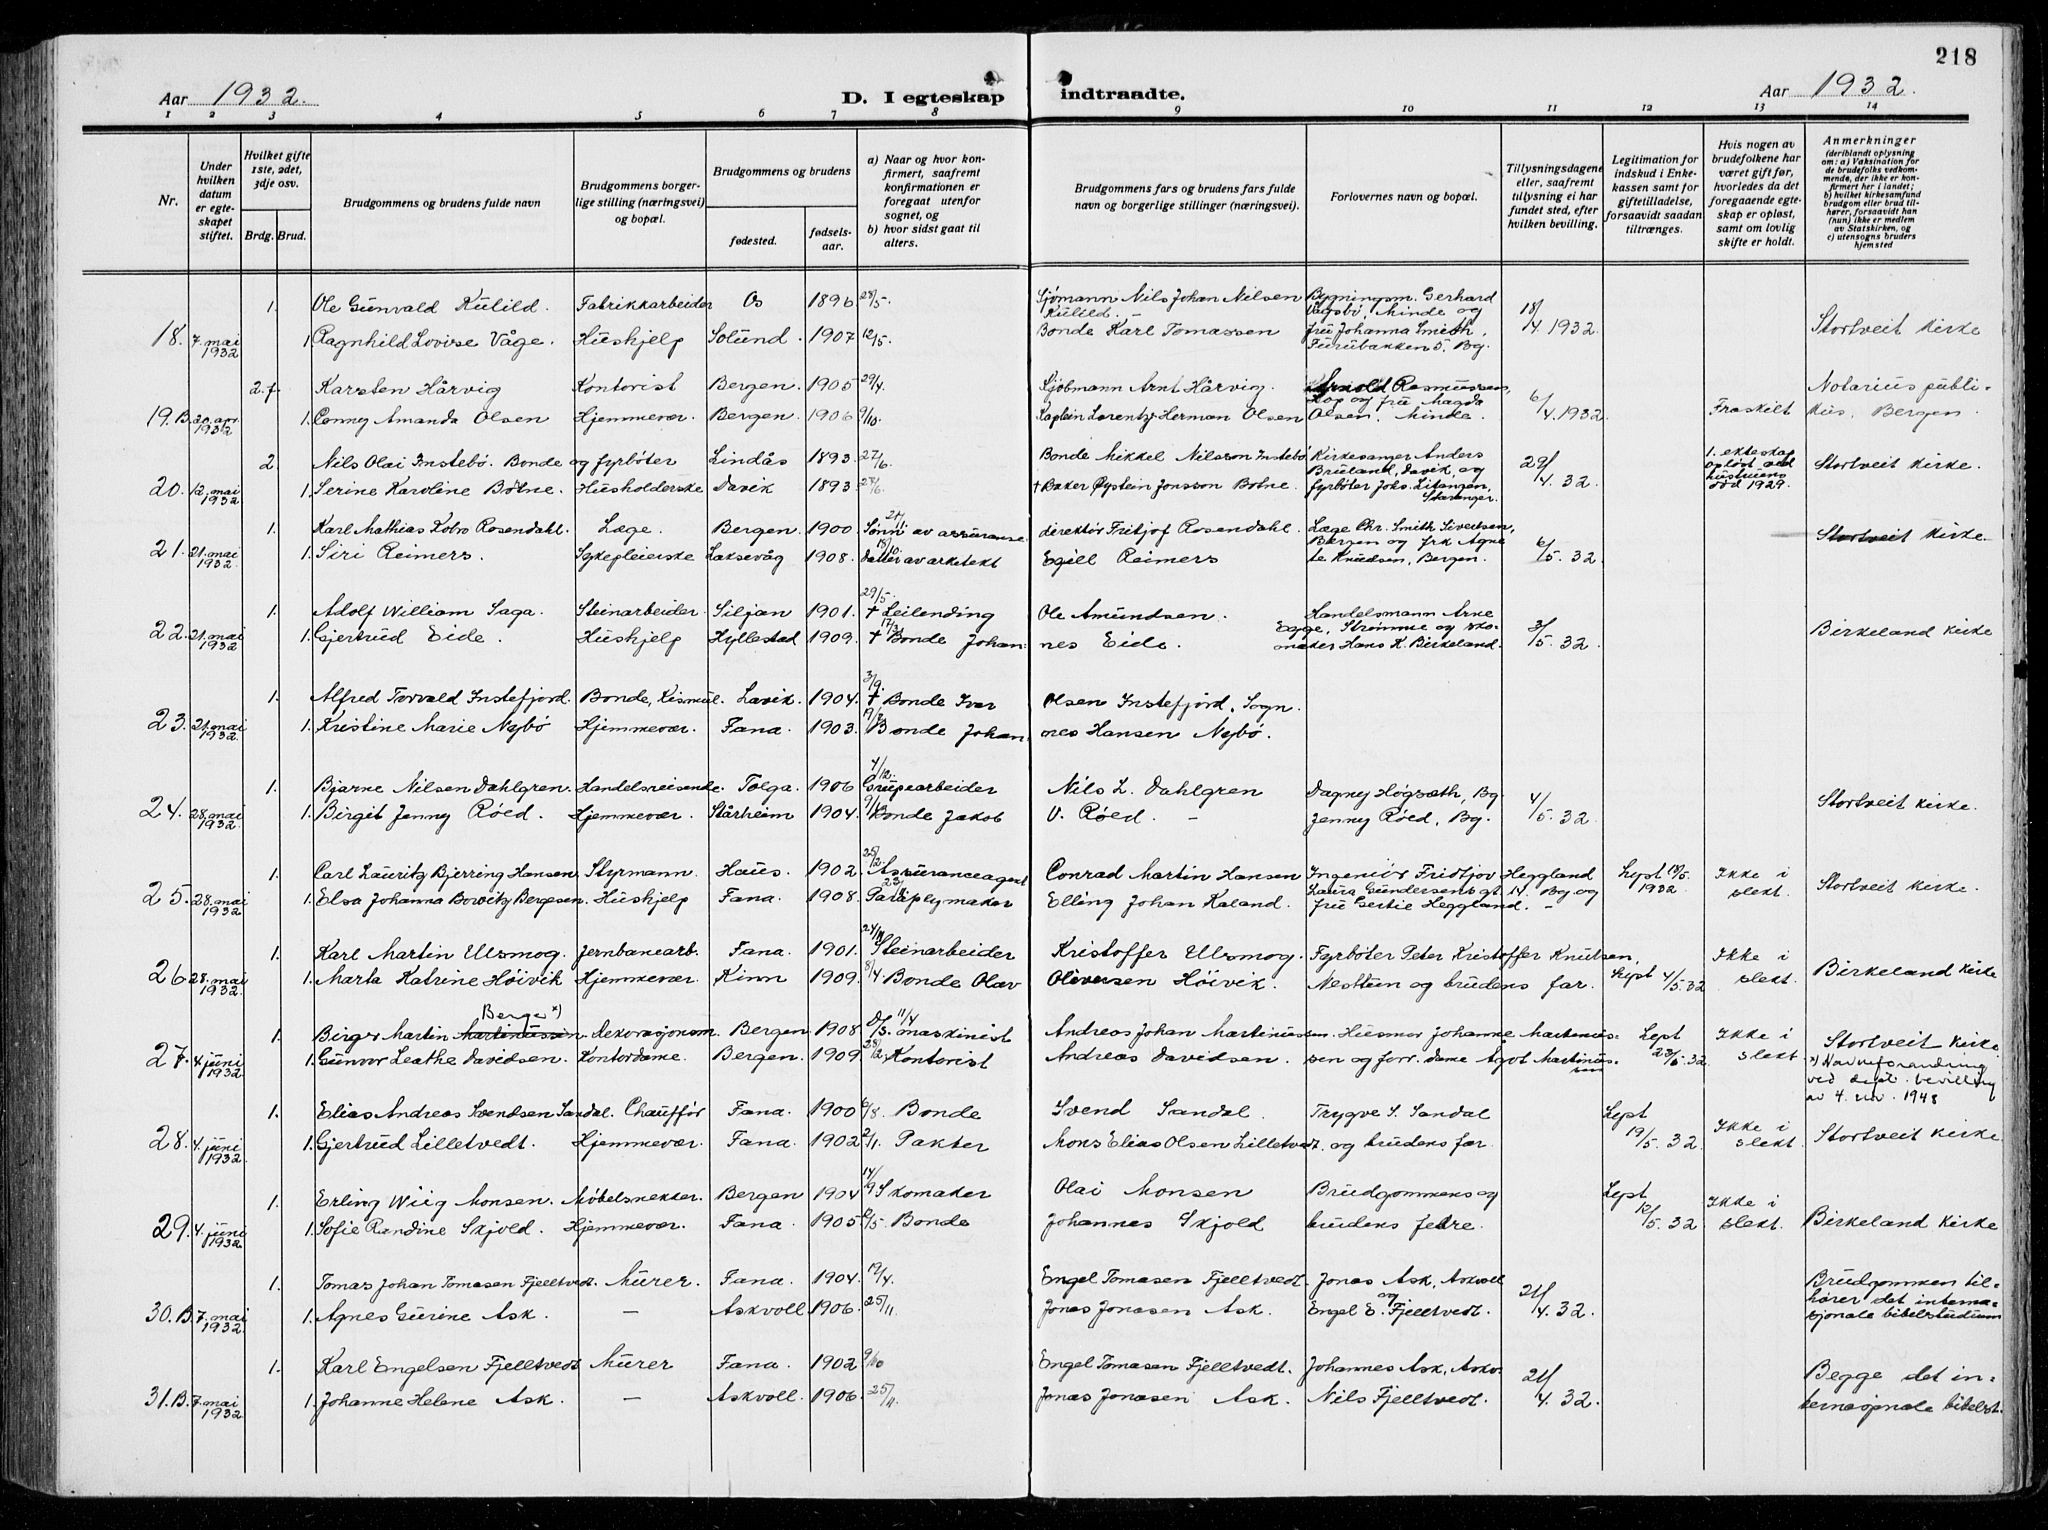 218
Aar 1932. D. I egteskap indtraadte. Aar 1932.
1 2 3 4 5 6 7 8 9 10 11 12 13 14
Nr.
Under hvilken datum er egteskapet stiftet.
Hvilket gifte 1ste, 2det, 3dje osv.
Brdg. Brud.
Brudgommens og brudens fulde navn
Brudgommens borgerlige stilling (næringsvei) og bopæl.
Brudgommens og brudens
fødested.
fødselsaar.
a) Naar og hvor konfirmert, saafremt konfirmationen er foregaat utenfor sognet, og
b) hvor sidst gaat til alters.
Brudgommens fars og brudens fars fulde navn og borgerlige stillinger (næringsvei).
Forlovernes navn og bopæl.
Tillysningsdagene eller, saafremt tillysning ei har fundet sted, efter hvilken bevilling.
Legitimation for indskud i Enkekassen samt for giftetilladelse, forsaavidt saadan tiltrænges.
Hvis nogen av brudefolkene har været gift før, hvorledes da det foregaaende egteskap er opløst, samt om lovlig skifte er holdt.
Anmerkninger (deriblandt oplysning om: a) Vaksination for de brudefolks vedkommende, der ikke er konfirmert her i landet; b) hvilket kirkesamfund brudgom eller brud tilhører, forsaavidt han (hun) ikke er medlem av Statskirken, og c) utensogns bruders hjemsted
1. Ole Gunvald Kulild. Fabrikkarbeider Os 1896 28/5. Sjømann Nils Johan Nilsen Kulild. Bygningsm. Gerhard Vågsbø, Minde og 18/4. 1932
18. 7. mai 1932 1. Ragnhild Lovise Våge. Hushjelp Solund. 1907 12/5. Bonde Karl Tomassen fru Johanna Smith, Furubakken 5, Bg. Stortveit kirke
2. f. Karsten Hårvig Kontorist Bergen. 1905 29/4. Sjømann Arnt Hårvig. Arnold Rasmussen, Hop og fru Magda 6/4. 1932. Notarius publi-
19. B. 20. apr. 1932 1. Conny Amanda Olsen Hjemmevær. Bergen. 1906 9/10. Kaptein Lorentz Herman Olsen Olsen. Minde. Fraskilt kus, Bergen.
2. Nils Olai Instebø. Bonde og fyrbøter Lindås 1893. 27/6. Bonde Mikkel Nilsson Instebø Kirkesanger Anders Bruland, Davik, og 29/4. 32. 1. ekteskap opløst ved hustruens død 1929. Stortveit kirke.
20. 12. mai 1932 1. Serine Karoline Botne. Husholderske Davik 1893. † Baker Øystein Jonsson Botne. fyrbøter Joks. Litangen, Stavanger.
1. Karl Mathias Kobro Rosendahl. Læge. Bergen. 1900 Sønn av assuranse direktør Fritjof Rosendahl. Læge Chr. Smith Sivertsen, Bergen og frk Agne 6/5. 32. Stortveit kirke
21. 21. mai 1932 1. Siri Reimers. Sykepleierske Laksevåg 1908. Datter av arkitekt Egill Reimers te Knudsen, Bergen.
1. Adolf William Saga. Steinarbeider. Siljan 1901. 29/5. † Leilending Ole Amundsen. Handelsmann Arne Egge, Strømme og sko- 3/5. 32.
22. 21. mai 1932 1. Gjertrud Eide. Hushjelp Hyllestad 1909. 17/3 † Bonde Johannes Eide. maker Hans K. Birkeland. Birkeland kirke
1. Alfred Torvald Instefjord. Bonde, Kismul. Lavik. 1904. 3/9. † Bonde Ivar Olsen Instefjord, Sogn.
23. 21. mai 1932 1. Kristine Marie Nybø Hjemmevær. Fana. 1903. 19/7 Bonde Johannes Hansen Nybø.
1. Bjarne Nilsen Dahlgren. Handelsreisende. Tolga. 1906 4/12. Grubearbeider Nils L. Dahlgren Dagny Høgsæth, Bg. 4/5. 32.
24. 28. mai 1932. 1. Birgit Jenny Røed. Hjemmevær. Stårheim 1904. Bonde Jakob V. Røed. Jenny Røed, Bg. Stortveit kirke.
1. Carl Lauritz Bjerring Hansen. Styrmann. Haus. 1902. 25/2. Assuranceagent Conrad Martin Hansen Ingeniør Fridtjov Heggland Lyst 13/5. 1932 Ikke i slekt.
25. 28. mai 1932 1. Elsa Johanna Bowitz Bergesen. Hushjelp Fana. 1908. Paraplymaker Elling Johan Kaland. Laura Gundersens gt. 14, Bg og fru Gertie Heggland. Stortveit kirke.
1. Karl Martin Ulsmog. Jernbanearb. Fana. 1901. 24/11 Steinarbeider Kristoffer Ulsmog. Fyrbøter Peter Kristoffer Knutsen, Ikke i slekt.
26. 28. mai 1932. 1. Marta Katrine Høivik Hjemmevær. Kinn 1909. 8/4. Bonde Olav Oliversen Høivik. Nesttun og brudens far. Lyst 4/5. 32 Birkeland kirke
1. Birger Martin Martinussen Berge x) dekorasjonsm. Bergen. 1908 11/4 maskinist Andreas Johan Martinussen. Husmor Johanne Martinus- Lyst 23/5. 32 Ikke i slekt Stortveit kirke
27. 4. juni 1932 1. Gunvor Leathe Davidsen. Kontordame. Bergen. 1909. 28/12. Kontorist Andreas Davidsen. sen og forr. dame Agot Martinussen x) Navneforandring ved dept. bevilling av 4. nov. 1948
1. Elias Andreas Svendsen Sandal. Chauffør Fana. 1900 6/8. Bonde Svend Sandal. Trygve S. Sandal Lyst 19/5. 32 Ikke i slekt
28. 4. juni 1932 1. Gjertrud Lilletvedt. Hjemmevær. Fana. 1902 2/11. Pakter Mons Elias Olsen Lilletvedt. og brudens far Stortveit kirke
1. Erling Wiig Monsen. Møbelsnekker. Bergen 1904 14/9 Skomaker Olai Monsen Brudgommens og Lyst 12/5. 32 Ikke i slekt.
29. 4. juni 1932 1. Sofie Randine Skjold. Hjemmevær. Fana. 1905 2/5. Bonde Johannes Skjold brudens fedre. Birkeland kirke
1. Tomas Johan Tomasen Fjelltvedt. Murer. Fana. 1904. 19/4. Engel Tomasen Fjelltvedt. Jonas Ask, Askvoll og 21/4. 32. Brudgommen til-
30. B. 7. mai 1932 1. Agnes Gurine Ask. — Askvoll 1906. 25/11. Jonas Jonasen Ask. Engel E. Fjelltvedt. hører det interna- sjonale bibelstudium
1. Karl Engelsen Fjelltvedt Murer Fana. 1902 9/10 Engel Tomasen Fjelltvedt. Johannes Ask, Askv. 21/4. 32. Begge det in-
31. B. 7. mai 1932 1. Johanne Helene Ask. — Askvoll. 1906. 25/11. Jonas Jonasen Ask. Nils Fjelltvedt. ternasjonale bibelst.